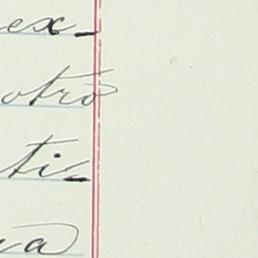 ex-
otro
ti-
ra